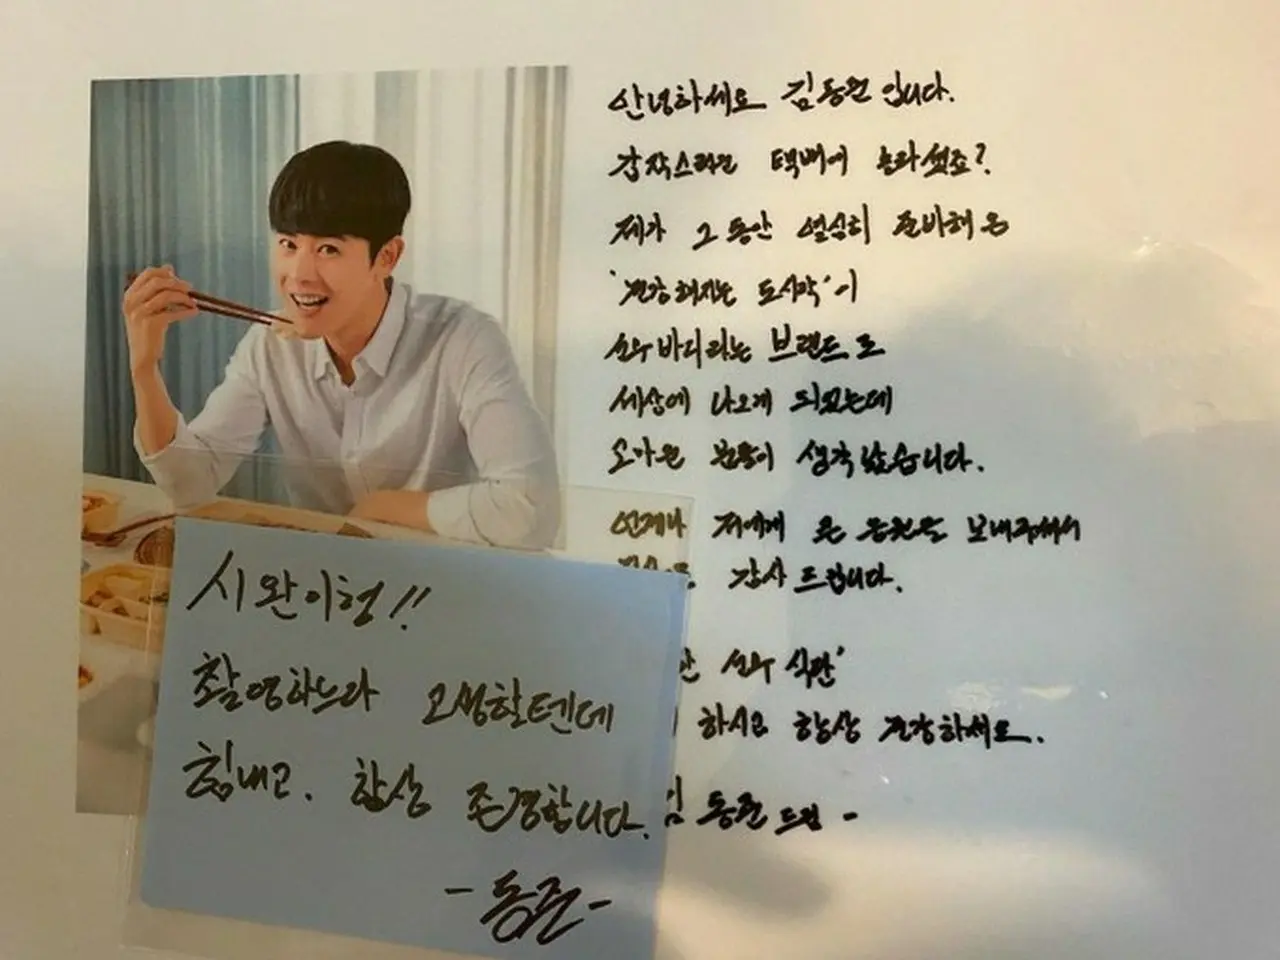 안녕하세요 김동준입니다.
갑작스러운 택배에 놀라셨죠?
제가 그동안 열심히 준비해온
'건강해지는 도시락'이
소우바디라는 브랜드로
세상에 나오게 되었는데
고마운 분들이 생각났습니다.
언제나 저에게 큰 응원을 보내주셔서
감사드립니다.
소우 식판'
하시고 항상 건강하세요.
김동준 드림 -
시완이형!!
촬영하느라 고생할텐데
힘내고. 항상 존경합니다.
-동준-